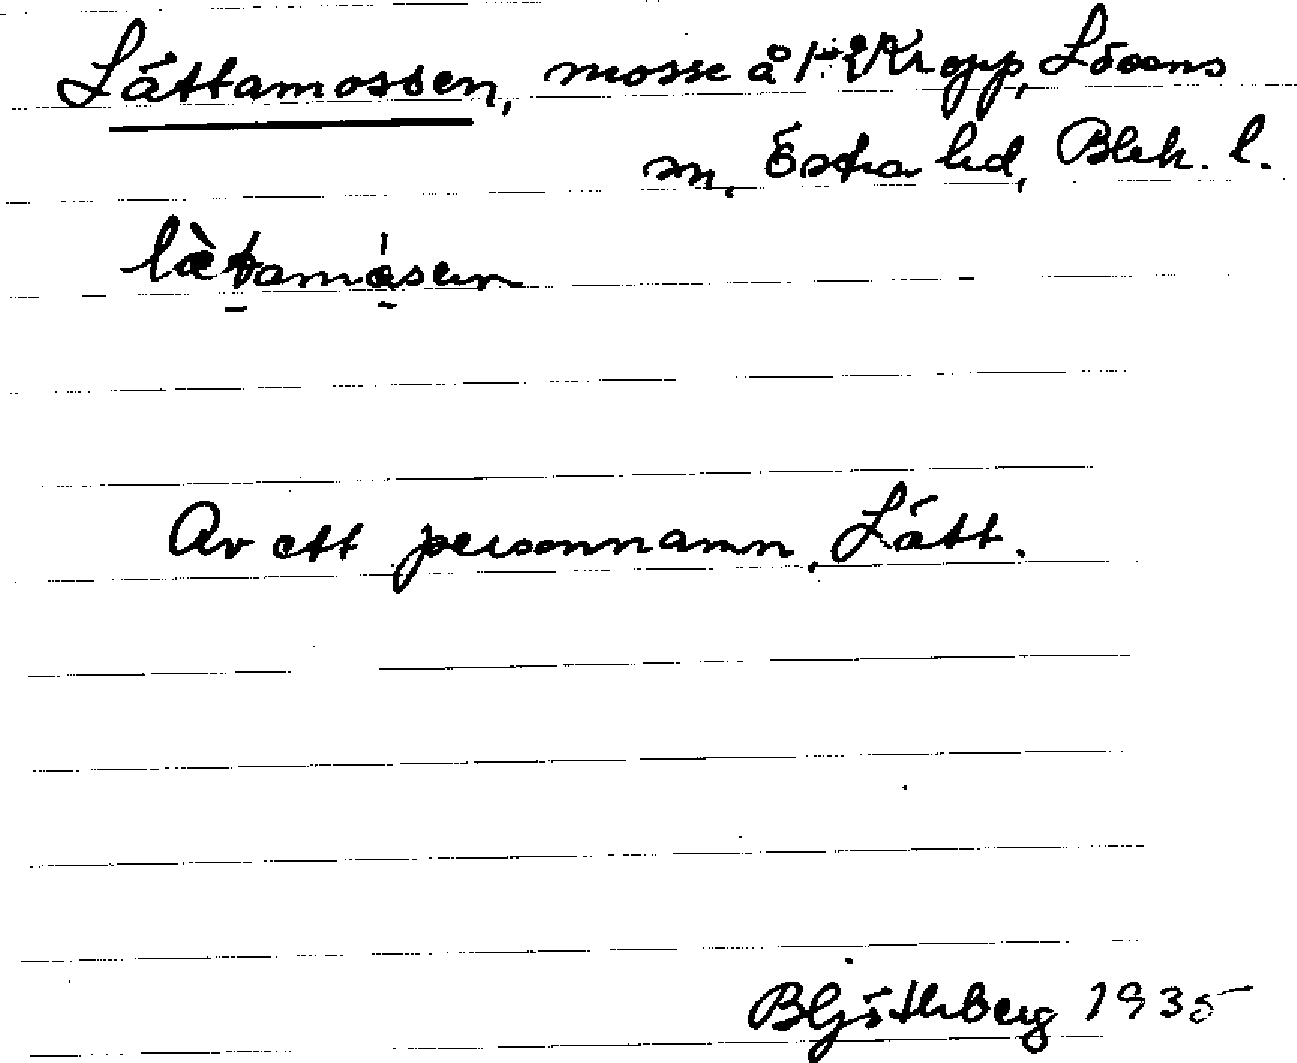 Lättamossen, mosse å Kropp, Lösens
sn, Östra hd, Blek. l.
lætamåsen
Av ett personnamn, Lätt.
BGöthberg 1935